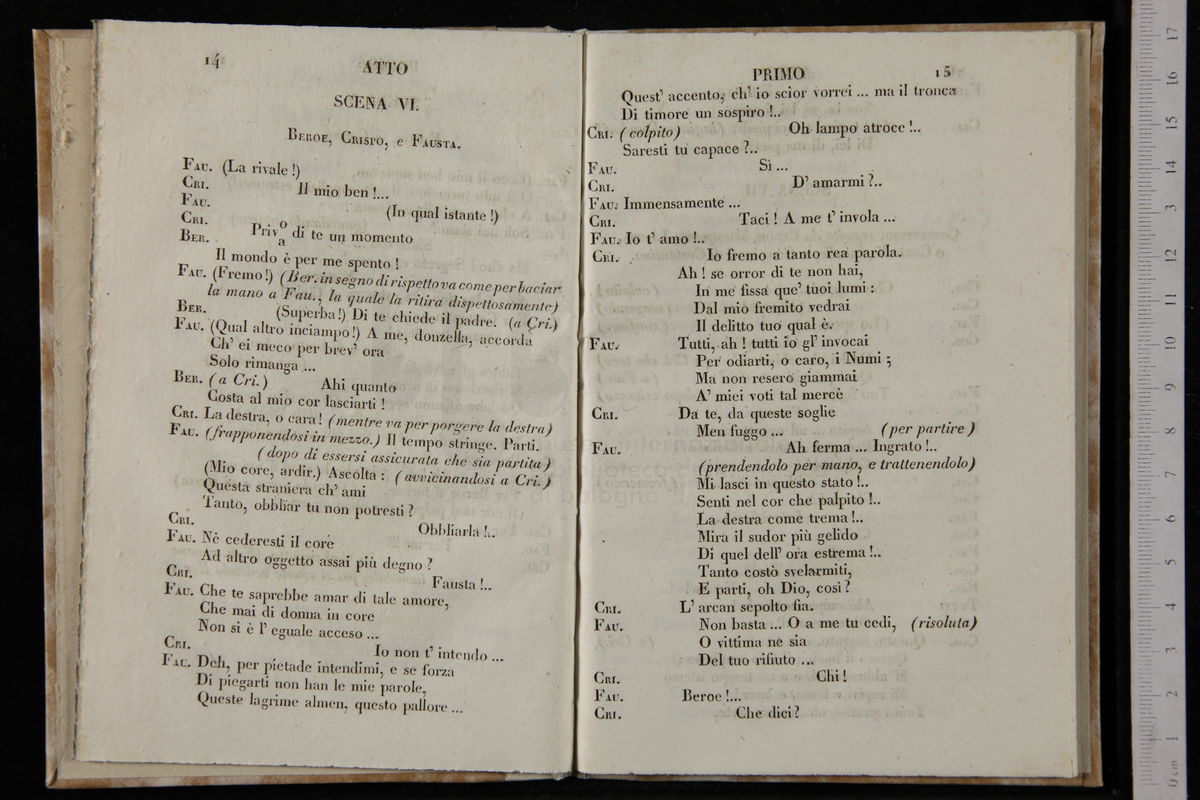 14
ATTO
SCENA VI.
Beroe, Crispo, e Fausta.
Fau. (La rivale!)
Cri. Il mio ben!...
Fau. (In qual istante!)
Cri. Priv o/a di te un momento
Ber.
Il mondo è per me spento!
Fau. (Fremo!) (Ber. in segno di rispetto va come per baciar
la mano a Fau., la quale la ritira dispettosamente)
Ber. (Superba!) Di te chiede il padre. (a Cri.)
Fau. (Qual altro inciampo!) A me, donzella, accorda
Ch' ei meco per brev' ora
Solo rimanga ...
Ber. (a Cri.) Ahi quanto
Costa al mio cor lasciarti!
Cri. La destra, o cara! (mentre va per porgere la destra)
Fau. (frapponendosi in mezzo.) Il tempo stringe. Parti.
(dopo di essersi assicurata che sia partita)
(Mio core, ardir.) Ascolta: (avvicinandosi a Cri.)
Questa straniera ch' ami
Tanto, obbliar tu non potresti?
Cri. Obbliarla!..
Fau. Nè cederesti il core
Ad altro oggetto assai più degno?
Cri. Fausta!..
Fau. Che te saprebbe amar di tale amore,
Che mai di donna in core
Non si è l' eguale acceso ...
Cri. Io non t' intendo ...
Fau. Deh, per pietade intendimi, e se forza
Di piegarti non han le mie parole,
Queste lagrime almen, questo pallore ...
PRIMO
15
Quest' accento, ch' io scior vorrei ... ma il tronca
Di timore un sospiro!..
Cri. (colpito) Oh lampo atroce!..
Saresti tu capace?..
Fau. Sì ...
Cri. D' amarmi?..
Fau. Immensamente ...
Cri. Taci! A me t' invola ...
Fau. Io t' amo!..
Cri. Io fremo a tanto rea parola.
Ah! se orror di te non hai,
In me fissa que' tuoi lumi:
Dal mio fremito vedrai
Il delitto tuo qual è.
Fau. Tutti, ah! tutti io gl' invocai
Per odiarti, o caro, i Numi;
Ma non resero giammai
A' miei voti tal mercè
Cri. Da te, da queste soglie
Men fuggo ... (per partire)
Fau. Ah ferma ... Ingrato!..
(prendendolo per mano, e trattenendolo)
Mi lasci in questo stato!..
Senti nel cor che palpito!..
La destra come trema!..
Mira il sudor più gelido
Di quel dell' ora estrema!..
Tanto costò svelarmiti,
E parti, oh Dio, così?
Cri. L' arcan sepolto fia.
Fau. Non basta ... O a me tu cedi, (risoluta)
O vittima ne sia
Del tuo rifiuto ...
Cri. Chi!
Fau. Beroe!...
Cri. Che dici?